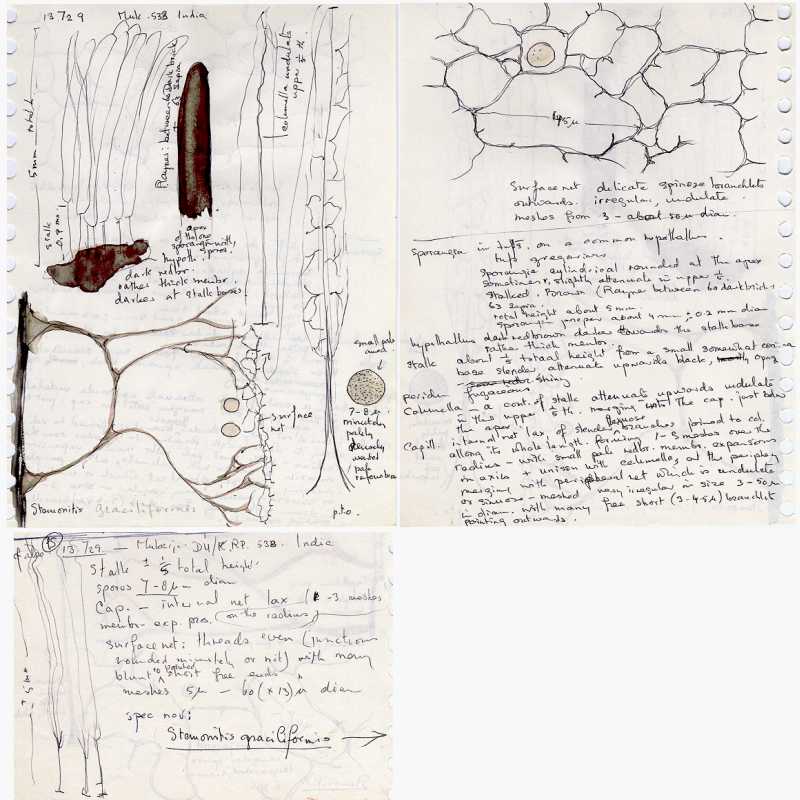 13729 Muk. 538 India
5 mm total h
stalk
0.9 mm
Rayner: between Dark brick
63 sepia
columella undulate
upper 1/5 th.
apex
of the one
sporangium with
spores.
hypoth.
dark red br.
rather thick membr.
darker at stalk bases
surface
net
small pale
area
7-8 µ
minutely
palely
warted
pale
Stemonitis graciliformis
p.t.o.
45 µ
Surface net delicate spinose branchlets
outwards. irregular, undulate.
meshes from 3 - about 50 µ diam.
Sporangia in tufts on a common hypothallus.
tufts gregarious
Sporangia cylindrical rounded at the apex
sometimes slightly attenuate in upper 1/2.
stalked. Brown (Rayner between 60 dark brick &
63 sepia.
total height about 5 mm
sporangia proper about 4 mm × 0.2 mm diam
hypothallus dark red brown darker towards the stalk base
rather thick membr.
Stalk about 1/5 total height from a small somewhat
base slender, attenuate upwards black, opaq
shining.
peridium fugaceous
Columella - a cont. of stalk attenuate upwards undulate
in this upper 1/5 th. merging with the cap. just below
the apex.
Capill. internal net lax of slender flexuose branches joined to col.
allong its whole length. forming 1-3 meshes over the
radius - with small pale redbr. member. expansions
in axils & union with columella, at the periphery
merging with peripheral net which is undulate
or sinuose - meshed very irregular in size 3-50µ
in diam. with many free short (3-4.5µ) branchlets
pointing outwards.
B 13.729 — Mukerji - DU/K.R.P. 538. India
Stalk ± 1/5 total height
spores 7-8µ diam
Cap. - internal net lax 1-3 meshes
membr. exp. pres. on the radius
surface net: threads even (junctions
rounded minutely or not) with many
blunt to pointed short free ends
meshes 5µ - 60 (×13)µ diam
± 5 mm
spec nov:
Stemonitis graciliformis →